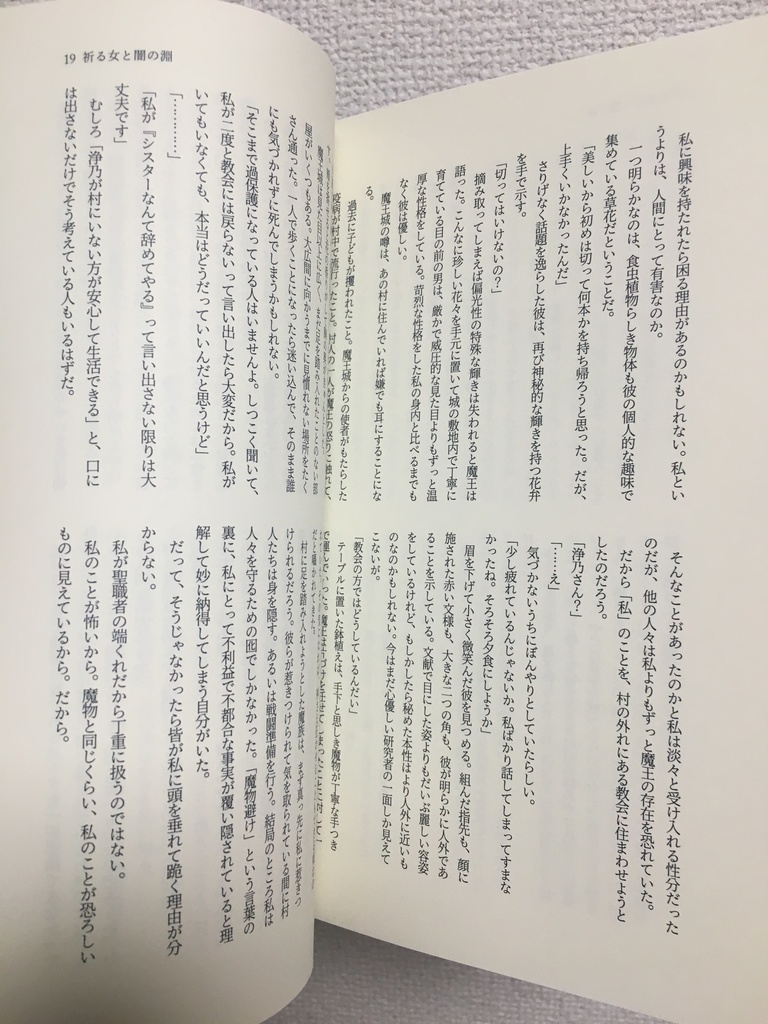 私に興味を持たれたら困る理由があるのかもしれない。私とい
うよりは、人間にとって有害なのか。
一つ明らかなのは、食虫植物らしき物体も彼の個人的な趣味で
集めている草花だということだ。
「美しいから初めは切って何本かを持ち帰ろうと思った。だが、
上手くいかなかったんだ」
さりげなく話題を逸らした彼は、再び神秘的な輝きを持つ花弁
を手で示す。
「切ってはいけないの？」
摘み取ってしまえば偏光性の特殊な輝きは失われると魔王は
語った。こんなに珍しい花々を手元に置いて城の敷地内で丁寧に
育てている目の前の男は、厳かで威圧的な見た目よりもずっと温
厚な性格をしている。苛烈な性格をした私の身内と比べるまでも
なく彼は優しい。
魔王城の噂は、あの村に住んでいれば嫌でも耳にすることにな
る。
過去に子どもが攫われたこと。魔王城からの使者がもたらした
疫病が村中で流行ったこと。村人の一人が魔王の怒りに触れて、
そんなことがあったのかと私は淡々と受け入れる性分だった
のだが、他の人々は私よりもずっと魔王の存在を恐れていた。
だから「私」のことを、村の外れにある教会に住まわせようと
したのだろう。
「浄乃さん？」
「……え」
気づかないうちにぼんやりとしていたらしい。
「少し疲れているんじゃないか。私ばかり話してしまってすまな
かったね。そろそろ夕食にしようか」
眉を下げて小さく微笑んだ彼を見つめる。組んだ指先も、顔に
施された赤い文様も、大きな二つの角も、彼が明らかに人外であ
ることを示している。文献で目にした姿よりもだいぶ麗しい容姿
をしているけれど、もしかしたら秘めた本性はより人外に近いも
のなのかもしれない。今はまだ心優しい研究者の一面しか見えて
こないが。
「教会の方ではどうしているんだい」
テーブルに置いた鉢植えは、手下と思しき魔物が丁寧な手つき
で運んでいった。
19 祈る女と闇の淵
屋がいくつもある。大広間に向かうまでに見慣れない場所をたく
さん通った。一人で歩くことになったら迷い込んで、そのまま誰
にも気づかれずに死んでしまうかもしれない。
「そこまで過保護になっている人はいませんよ。しつこく聞いて、
私が二度と教会には戻らないって言い出したら大変だから。私が
いてもいなくても、本当はどうだっていいんだと思うけど」
「…………」
「私が『シスターなんて辞めてやる』って言い出さない限りは大
丈夫です」
むしろ「浄乃が村にいない方が安心して生活できる」と、口に
は出さないだけでそう考えている人もいるはずだ。
だと囁かれてきた。
村に足を踏み入れようとした魔族は、まず真っ先に私に惹きつ
けられるだろう。彼らが惹きつけられて気を取られている間に村
人たちは身を隠す。あるいは戦闘準備を行う。結局のところ私は
人々を守るための囮でしかなかった。「魔物避け」という言葉の
裏に、私にとって不利益で不都合な事実が覆い隠されていると理
解して妙に納得してしまう自分がいた。
だって、そうじゃなかったら皆が私に頭を垂れて跪く理由が分
からない。
私が聖職者の端くれだから丁重に扱うのではない。
私のことが怖いから。魔物と同じくらい、私のことが恐ろしい
ものに見えているから。だから。